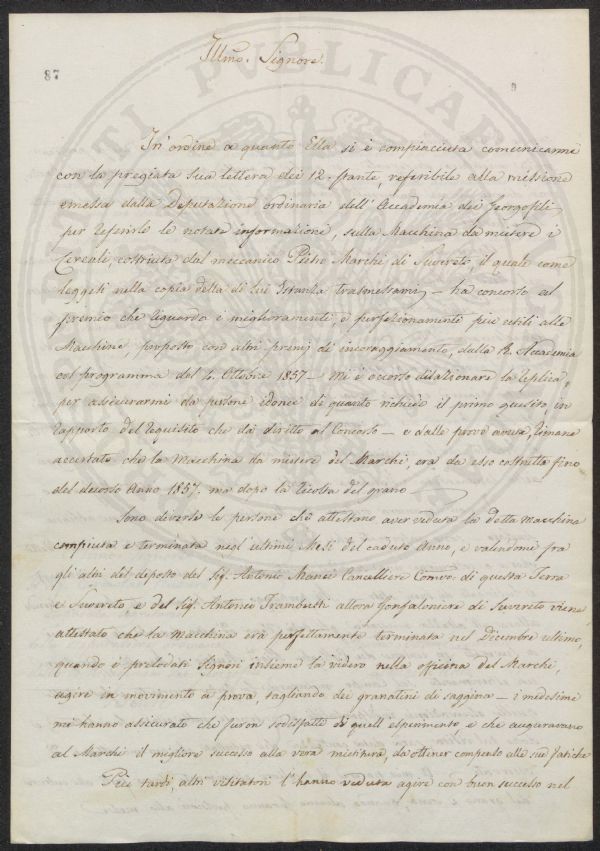 Illmo. Signore.
87
9
PUBLICAE
In ordine a quanto Ella si è compiaciuta comunicarmi
con la pregiata sua lettera dei 12. stante, referibile alla missione
emessa dalla Deputazione ordinaria dell'Accademia dei Georgofili,
per referirle le notate informazione, sulla Macchina da mietere i
Cereali, costruita dal meccanico Pietro Marchi di Suvereto, il quale come
leggesi nella copia della di lui Istanza trasmessami, - ha concorso al
premio che riguarda i miglioramenti, e perfezionamenti più utili alle
Macchine, proposto con altri premj di incoraggiamento, dalla R. Accademia
col programma del 4. Ottobre 1857 - Mi è occorso dilazionare la replica,
per assicurarmi da persone idonee di quanto richiede il primo quesito, in
rapporto del requisito che dà diritto al Concorso - e dalle prove avute, rimane
accertato che la Macchina da mietere del Marchi, era da esso costruita fino
del decorso Anno 1857. ma dopo la ricolta del grano -
Sono diverse le persone che attestano aver veduta la detta Macchina
compiuta e terminata negl'ultimi Mesi del caduto Anno, e valendomi fra
gli altri del deposto del Sig. Antonio Cancelliere di questa Terra
e Suvereto, e del Sig. Antonio Trambusti allora Gonfaloniere di Suvereto viene
attestato che la Macchina era perfettamente terminata nel Dicembre ultimo,
quando i prelodati Signori insieme la videro nella officina del Marchi,
agire in movimento a prova, tagliando dei granatini di saggina - i medesimi
mi hanno assicurato che furon sodisfatti di quell'esperimento, e che auguravano
al Marchi il migliore successo alla vera mietitura, da ottener compenso alle sue fatiche
Più tardi, altri visitatori l'hanno veduta agire con buon successo nel